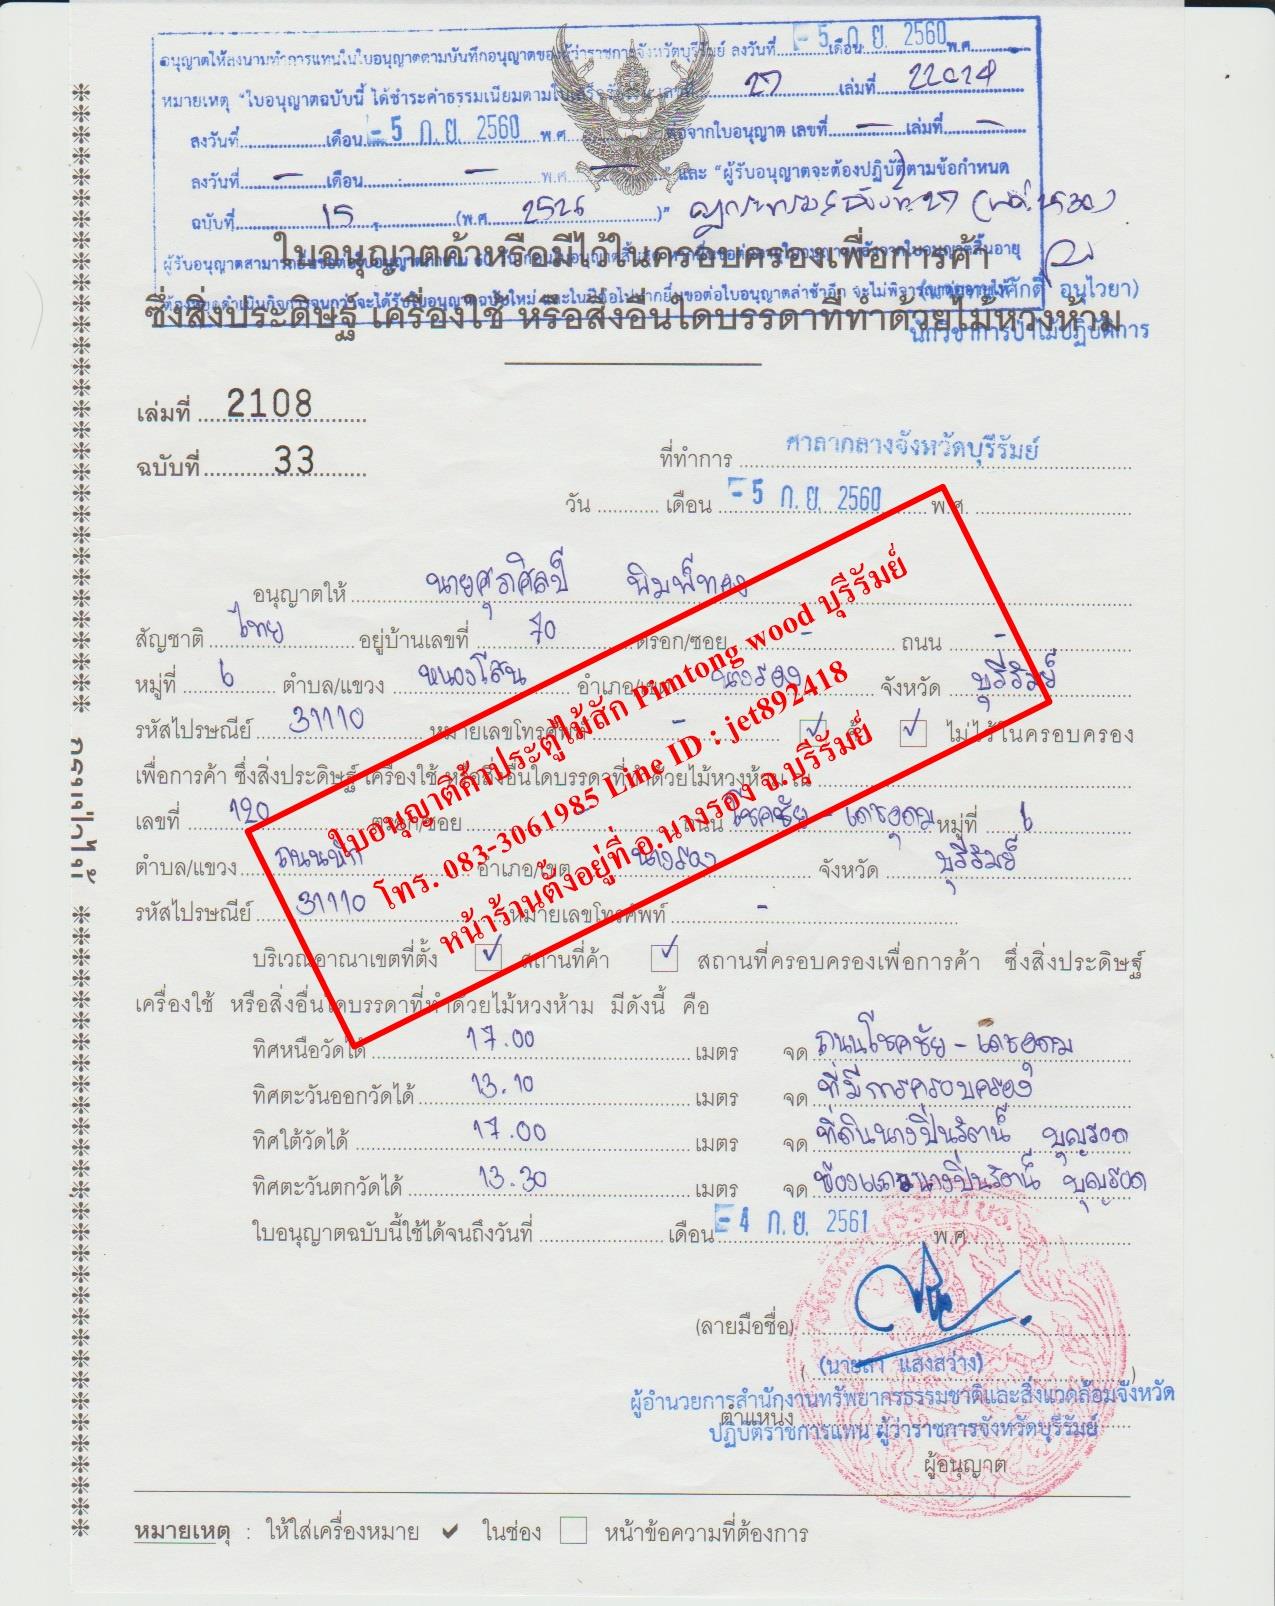 อนุญาตให้ลงนามทำการแทนในใบอนุญาตตามบันทึกอนุญาตของผู้ว่าราชการจังหวัดบุรีรัมย์ ลงวันที่ - 5 เดือน ก.ย. 2560 พ.ศ.
หมายเหตุ "ใบอนุญาตฉบับนี้ ได้ชำระค่าธรรมเนียมตามใบเสร็จรับเงิน เลขที่ 27 เล่มที่ 22024
ลงวันที่ เดือน - 5 ก.ย. 2560 พ.ศ. ต่อจากใบอนุญาต เลขที่ - เล่มที่ -
ลงวันที่ - เดือน - พ.ศ. - " และ "ผู้รับอนุญาตจะต้องปฏิบัติตามข้อกำหนด
ฉบับที่ 15 (พ.ศ. 2526 )"
ใบอนุญาตค้าหรือมีไว้ในครอบครองเพื่อการค้า
ซึ่งสิ่งประดิษฐ์ เครื่องใช้ หรือสิ่งอื่นใดบรรดาที่ทำด้วยไม้หวงห้าม
อนุไวยา)
นักวิชาการป่าไม้ปฏิบัติการ
เล่มที่ 2108
ฉบับที่ 33
ที่ทำการ ศาลากลางจังหวัดบุรีรัมย์
วัน เดือน - 5 ก.ย. 2560 พ.ศ.
อนุญาตให้ นายศุภศิลป์ พิมพ์ทอง
สัญชาติ ไทย อยู่บ้านเลขที่ 70 ตรอก/ซอย - ถนน -
หมู่ที่ 6 ตำบล/แขวง หนองโสน อำเภอ/เขต นางรอง จังหวัด บุรีรัมย์
รหัสไปรษณีย์ 31110 หมายเลขโทรศัพท์ - ✓ ค้า ✓ มีไว้ในครอบครอง
เพื่อการค้า ซึ่งสิ่งประดิษฐ์ เครื่องใช้ หรือสิ่งอื่นใดบรรดาที่ทำด้วยไม้หวงห้าม ณ
เลขที่ 120 ตรอก/ซอย ถนน โชคชัย - เดชอุดม หมู่ที่ 6
ตำบล/แขวง ถนนหัก อำเภอ/เขต นางรอง จังหวัด บุรีรัมย์
รหัสไปรษณีย์ 31110 หมายเลขโทรศัพท์ -
ใบอนุญาติค้าประตูไม้สัก Pimtong wood บุรีรัมย์
โทร. 083-3061985 Line ID : jet892418
หน้าร้านตั้งอยู่ที่ อ.นางรอง จ.บุรีรัมย์
บริเวณอาณาเขตที่ตั้ง ✓ สถานที่ค้า ✓ สถานที่ครอบครองเพื่อการค้า ซึ่งสิ่งประดิษฐ์
เครื่องใช้ หรือสิ่งอื่นใดบรรดาที่ทำด้วยไม้หวงห้าม มีดังนี้ คือ
ทิศเหนือวัดได้ 17.00 เมตร จด ถนนโชคชัย - เดชอุดม
ทิศตะวันออกวัดได้ 13.10 เมตร จด ที่มีการครอบครอง
ทิศใต้วัดได้ 17.00 เมตร จด ที่ดินนางปิ่นรัตน์ บุญรอด
ทิศตะวันตกวัดได้ 13.30 เมตร จด ห้องแถวนางปิ่นรัตน์ บุญรอด
ใบอนุญาตฉบับนี้ใช้ได้จนถึงวันที่ เดือน - 4 ก.ย. 2561 พ.ศ.
(ลายมือชื่อ)
แสงสว่าง)
ผู้อำนวยการสำนักงานทรัพยากรธรรมชาติและสิ่งแวดล้อมจังหวัด
ตำแหน่ง
ปฏิบัติราชการแทน ผู้ว่าราชการจังหวัดบุรีรัมย์
ผู้อนุญาต
หมายเหตุ : ให้ใส่เครื่องหมาย ✓ ในช่อง ☐ หน้าข้อความที่ต้องการ